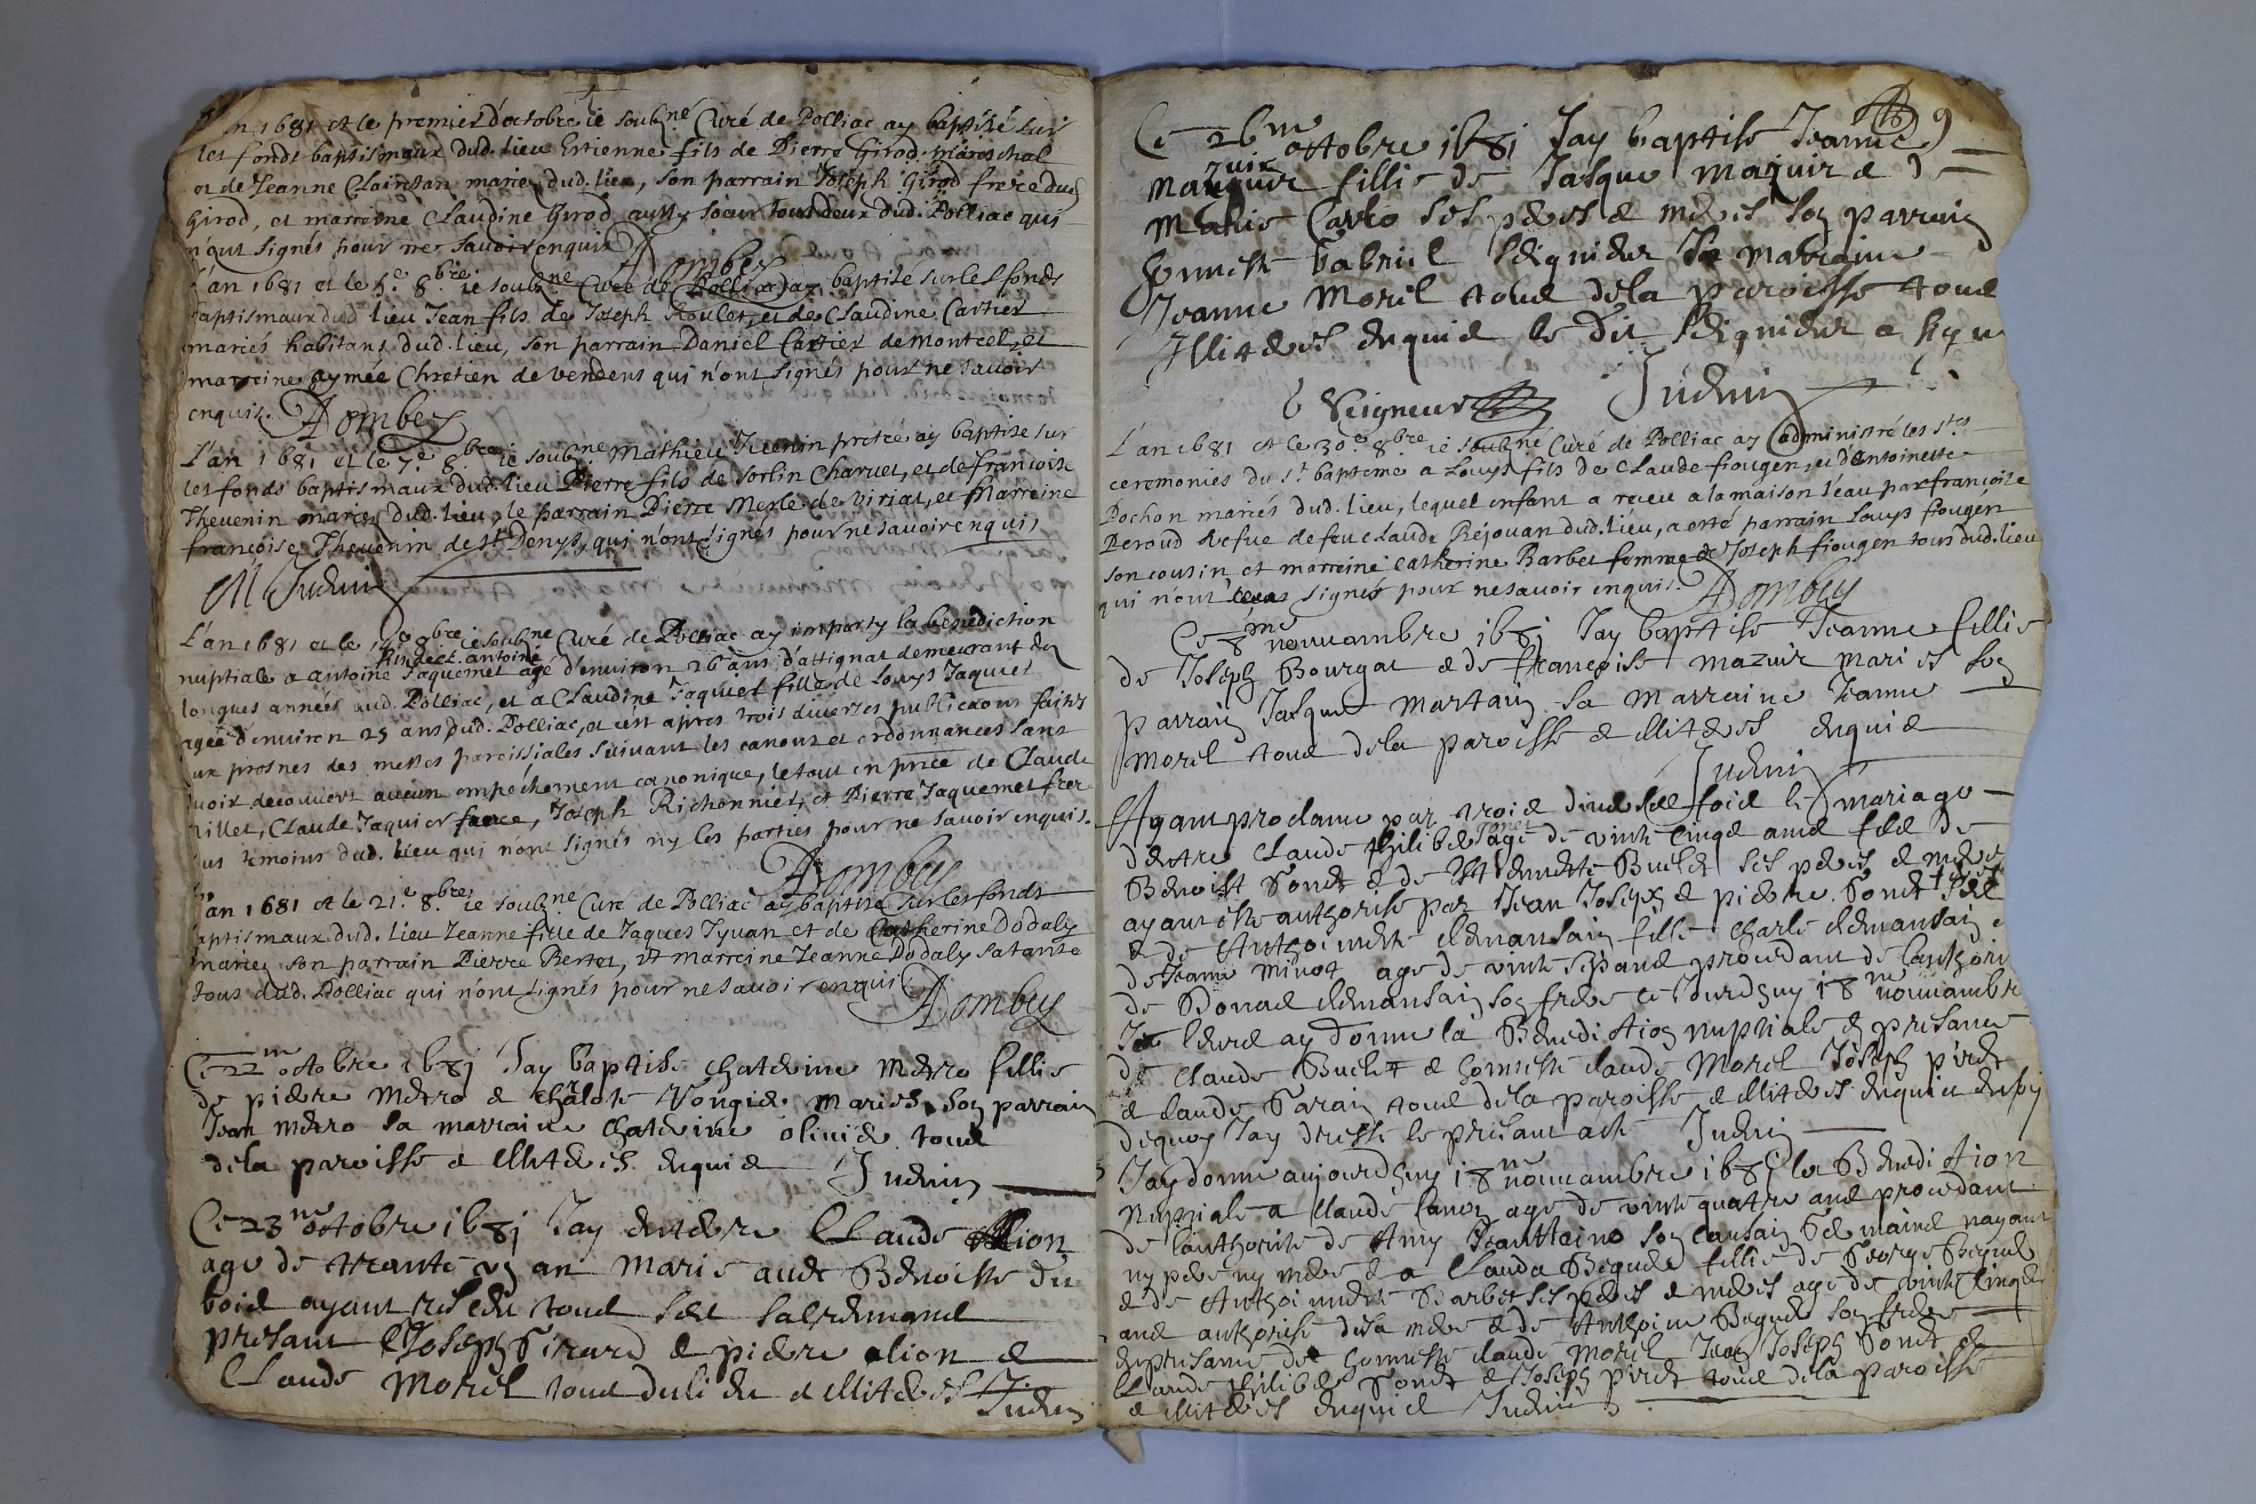 an 1681 et le premier d'octobre ie soubne Curé de Polliac ay baptisé sur
les fonds baptismaux dud. lieu Estienne fils de Pierre Girod Mareschal
et de Jeanne Clairstan mariez dud. lieu, son parrain Joseph Girod frere dud
Girod, et marreine Claudine Girod aussy soeur tous deux dud. Polliac qui
n'ont signés pour ne savoir enquis Dombey
L'an 1681 et le 5.e 8.bre ie soubne Curé de Polliac ay baptisé sur les fonds
baptismaux dud lieu Jean fils de Joseph Roulet, et de Claudine Cartier
mariés habitans dud. lieu, son parrain Daniel Cartier de Montcel, et
marreine aymée Chretien de vendens qui n'ont signés pour ne savoir
enquis. Dombey
L'an 1681 et le 7.e 8.bre ie soubne Mathieu Juenin pretre ay baptise sur
les fonds baptismaux dud. lieu Pierre fils de Sorlin Charuet, et de françoise
Theuenin mariez dud. lieu, le parrain Pierre Merle de viriat, et Marreine
françoise Theuenin de St Denys, qui n'ont signés pour ne savoir enquis
M Juenin
L'an 1681 et le 8.bre ie soubne Curé de Polliac ay imparty la benediction
fils de fet. antoine
nuptiale a antoine Jaquemet agé d'environ 26 ans d'attignat demeurant des
longues années aud. Polliac, et a Claudine Jaquier fille de Louys Jaquier
agée d'environ 25 ans dud. Polliac, et cest apres trois diverses publicaons faites
aux prosnes des messes paroissiales suivant les canons et ordonnances sans
avoir decouvert aucun empéchement canonique, le tout en prnce de Claude
illet, Claude Jaquier, Joseph Richonnier, et Pierre Jaquemet frere
tous témoins dud. lieu qui n'ont signés ny les parties pour ne savoir enquis.
Dombey
L'an 1681 et le 21.e 8.bre ie soubne Curé de Polliac ay baptisé sur les fonds
baptismaux dud. lieu Jeanne fille de Jaques Tyuan et de Catherine Dodaly
mariez son parrain Pierre Bertet, et marreine Jeanne Dodaly sa tante
tous dud. Polliac qui n'ont signés pour ne savoir enquis
Dombey
Ce 22me octobre 1681 Jay baptise chaterine metro fillie
de piere metro e chalote Vongie maries son parrain
Jean metro sa marraine chaterine oliuie tous
dela paroisse e illiteres enquie Juenin
Ce 23me octobre 1681 Jay entere Claude Alion
age de trante un an marie auec Benoiste du
bois ayant reseu tous ses sacremans
presant Joseph Girard e piere alion e
Claude Morel tous du lieu e illiteres Juenin
9
Ce 26me octobre 1681 Jay baptise Jeanne
zuir
fillie de Jasque maquir e de
Marie Carlo ses peres e meres son parrain
honneste Gabriel seignieur sa marraine
Jeanne Morel tous dela paroisse tous
Illiteres enquie le dit seignieur a signe
G Seigneur Juenin
L'an 1681 et le 30.e 8.bre ie soubne Curé de Polliac ay administré les stes
ceremonies du St bapteme a Louys fils de Claude fiougen, et d'Antoinette
Pochon mariés dud. lieu, lequel enfant a receu a la maison l'eau par françoise
Peroud vefue de feu claude Réjouan dud. liéu, a esté parrain Louys fiougen
son cousin, et marreine catherine Barbet femme de Joseph fiougen tous dud. lieu
qui n'ont signés pour ne savoir enquis. Dombey
Ce 8me nouuambre 1681 Jay baptise Jeanne fillie
de Joseph Bourgat e de françoise mazuir maries son
parrain Jasque Martain sa marraine Jeanne
Morel tous dela paroisse e illiteres enquie
Juenin
Ayant proclame par trois diuerses fois le mariage
dentre Claude philiber Gonet age de vint cinqs ans fils de
Benoist Gonet e de Buclet ses peres e meres
ayant este authorise par Jean Joseph e piere Gonet
e de Anthoinette fillie Charle
de Jeanne Minot age de vint sept ans procedant de lauthori
de son frere ce Jourdhuy 18me nouuambre
Je leurs ay donne la Benediction nuptiale en presance
de Claude Buclet e honneste claude Morel Joseph piret
e claude Garain tous dela paroisse e illiteres enquie
dequoy Jay dresse le presant acte Juenin
Jay donne aujourdhuy 18me nouuambre 1681 la Benediction
Nuptiale a Claude Canon age de vint quatre ans procedant
de lauthorite de Amy son cousin Germain nayant
ny pere ny mere e a Clauda Beguet fillie de George Beguet
e de Anthoinette Barbet ses peres e meres age de vint cinq
ans authorise de sa mere e de Anthoine Beguet son frere
en presance de honneste claude Morel Jean Joseph Gonet e
Claude philiber Gonet e Joseph piret tous dela paroisse
e illiteres enquie Juenin